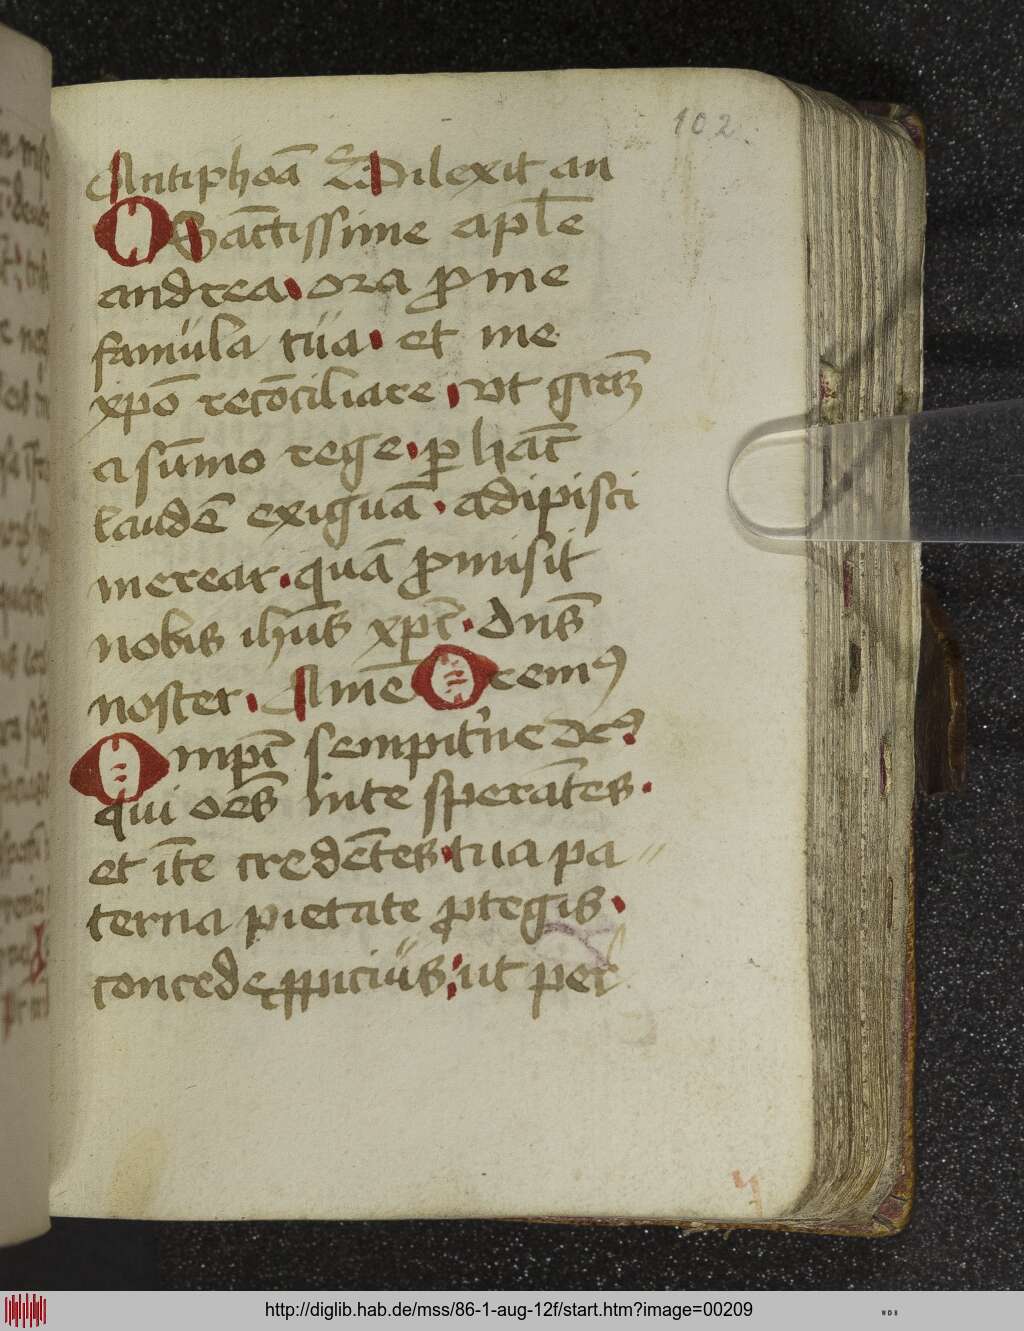 102
Antiphoā Dilexit an
O Sāctissime apl̄e
andrea. ora ꝓ me
famula tua. et me
xp̄o recōciliare. vt
a sūmo rege. ꝑ hāc
laudē exiguā. adipisci
merear. quā ꝓmisit
nobis ih̄us xp̄c. dn̄s
noster. Amē Oremꝰ
Omp̄c sempit̄ne deꝰ
qui oēs inte sperātes.
et īte credētes. tua pa
terna pietate ꝓtegis.
concede ꝓpicius. ut per
http://diglib.hab.de/mss/86-1-aug-12f/start.htm?image=00209